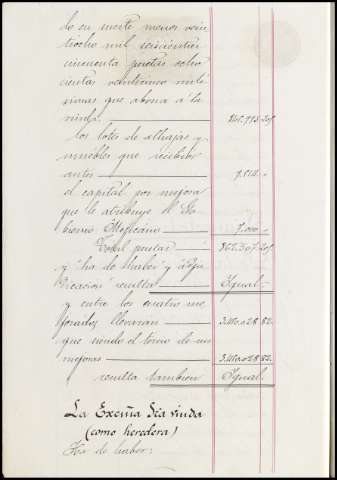 do su suerte menos vein
tiocho mil seiscientas
cincuenta pesetas ocho
cientas veinticinco milé
simas que abona á la
viuda.
los lotes de alhajas y
muebles que reciben
antes
el capital por mejora
que le atribuye el Go
bierno Mejicano 7.000
Total pesetas
y "ha de haber" y adju
dicación resulta Igual
y entre los cuatro me
jorados llevarán
que siendo el tercio de sus
mejoras
resulta tambien Igual.
La Excma Sra viuda
(como heredera)
Ha de haber: